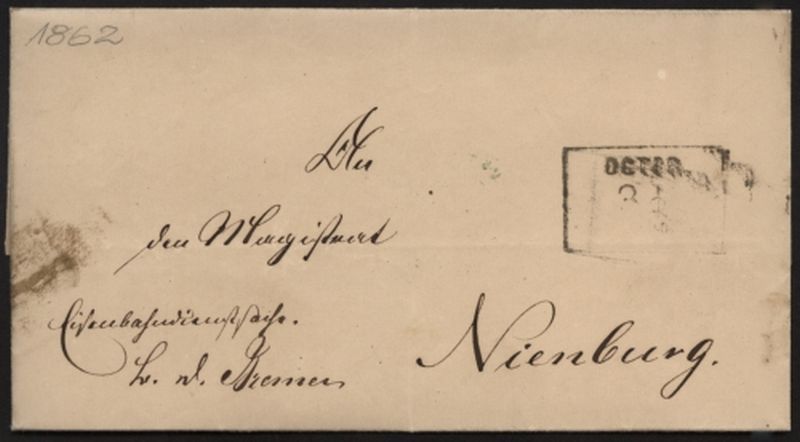 1862
An
den Magistrat
Eisenbahndienstsache.
Bremen
Nienburg.
OSTER
3